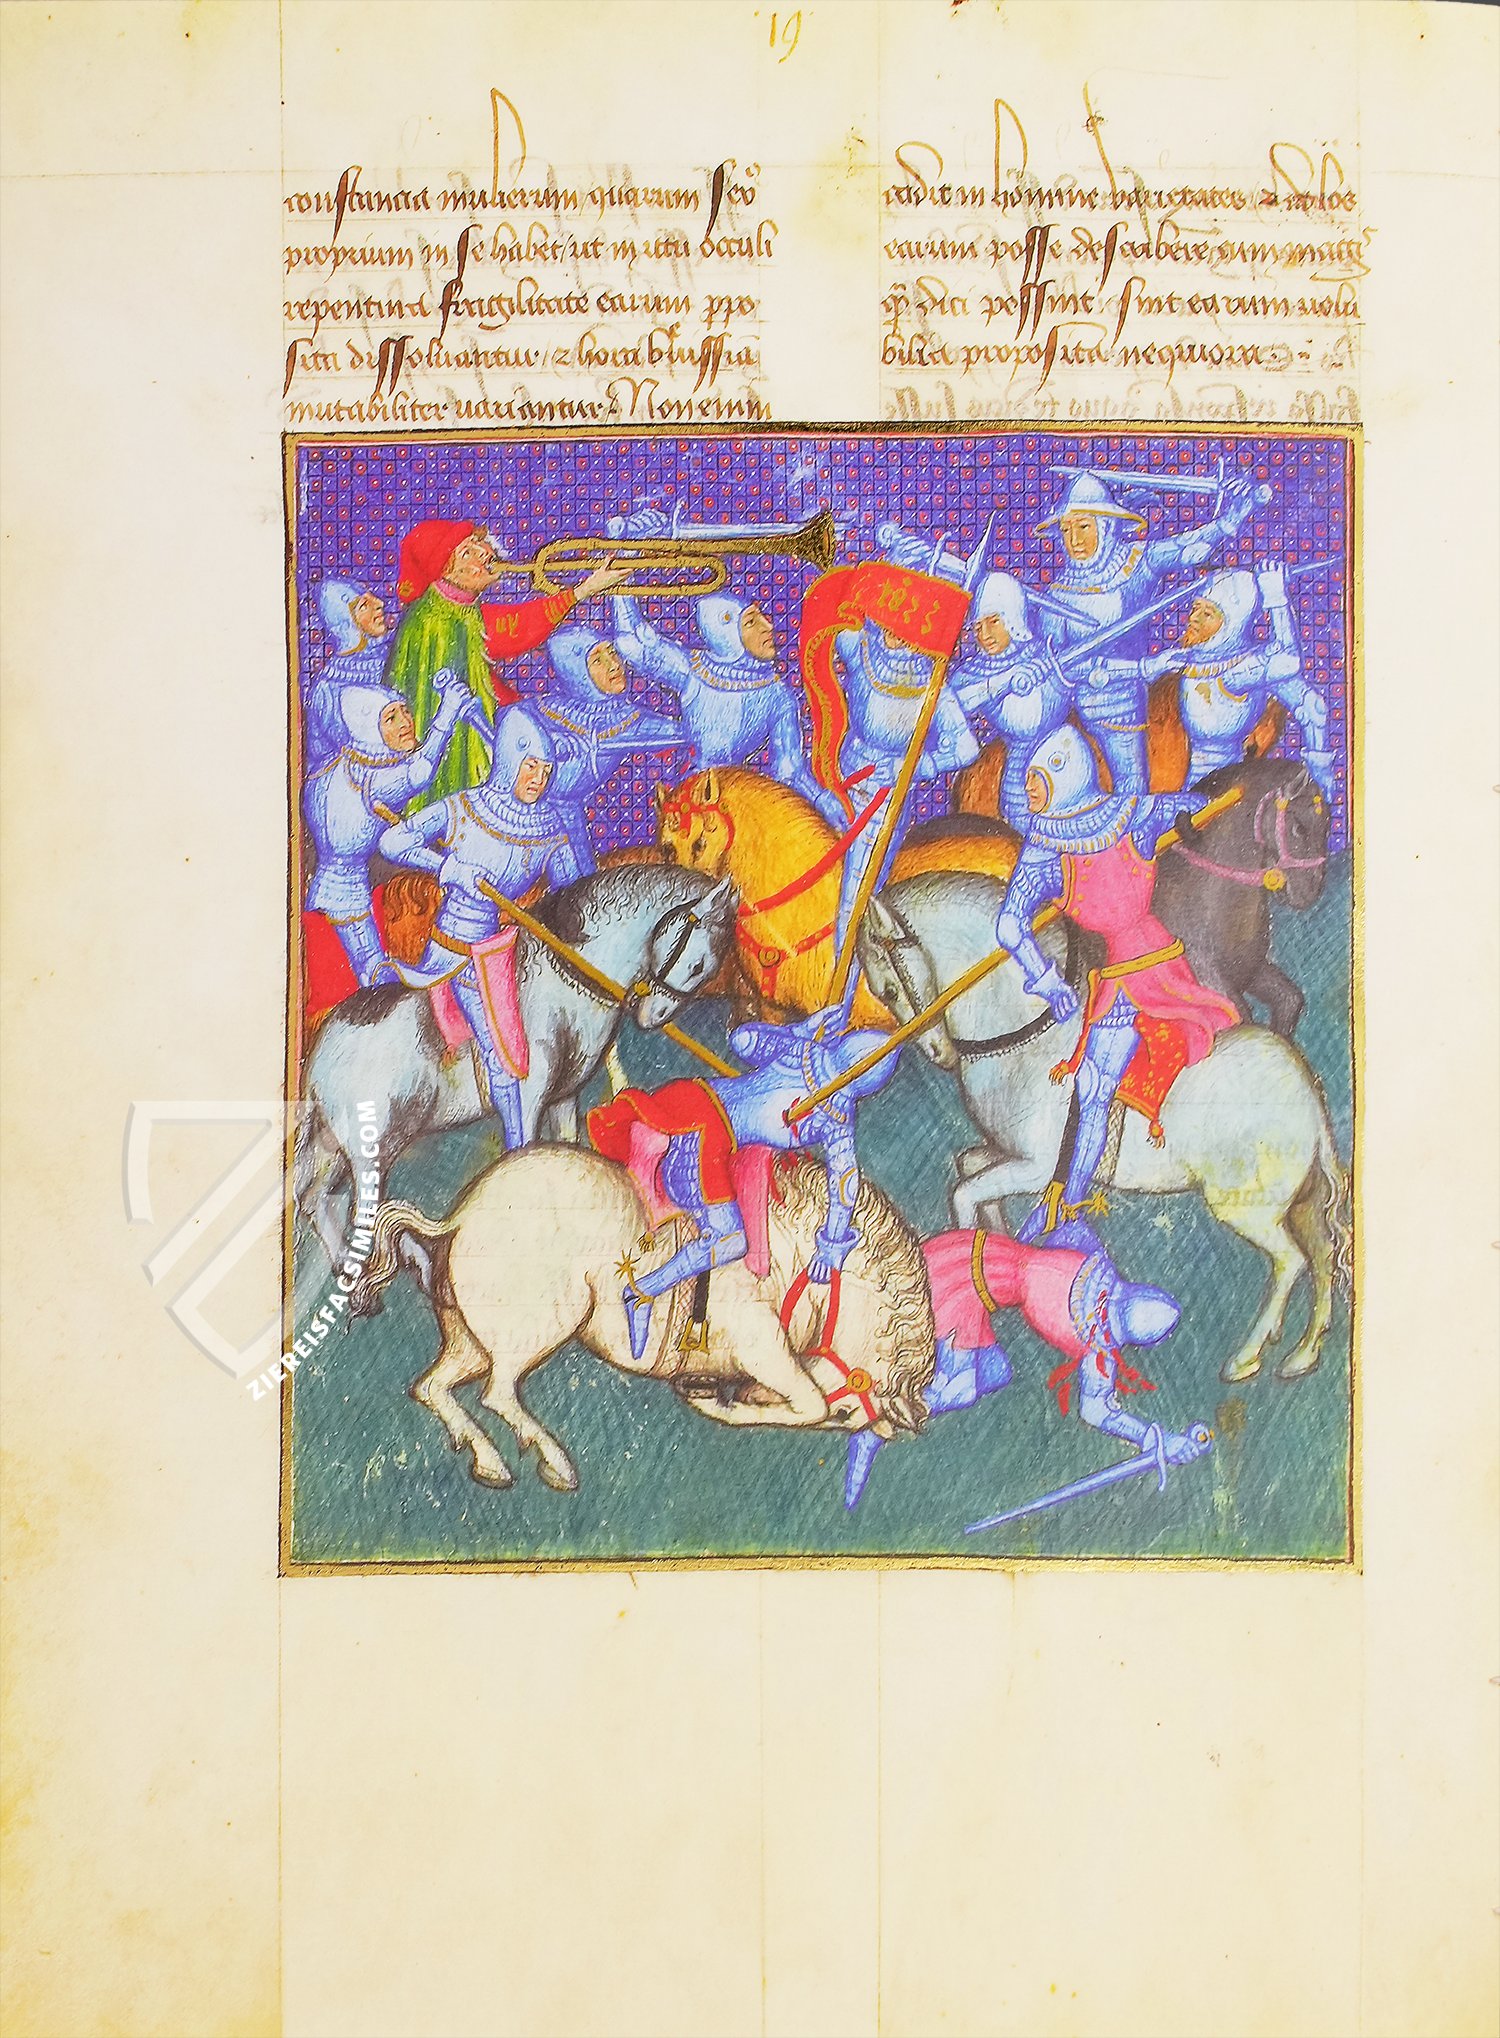 19
constancia mulierum quarum sexꝰ
proprium in se habet / ut in ictu occuli
repentina fragilitate earum ꝓpo
sita dissoluantur / ⁊ hora breuissīa
mutabiliter uariantur. Non enim
cadit in homine uarietates ⁊ dolos
earum posse describere cum magis
ꝙ̄ dici possint sint earum uolu
bilia proposita nequiora
ZIEREISFACSIMILES.COM